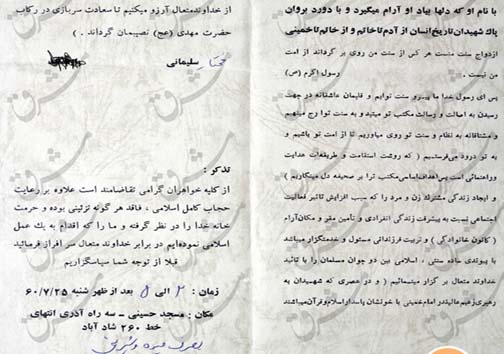 با نام او که دلها بیاد او آرام میگیرد و با درود بروان
پاک شهیدان تاریخ انسان از آدم تا خاتم و از خاتم تا خمینی
ازدواج سنت منست هر کس از سنت من روی بر گرداند از امت
من نیست . رسول اکرم (ص)
می ای رسول خدا ما پیرو سنت توایم و پیمان عاشقانه در جهت
رسیدن به اصالت و رسالت مکتب تو میبندیم و به سنت تو ارج مینهیم
و مشتاقانه به نظام و سنت تو روی میاوریم تا از امت تو باشیم و
به تو درود میفرستیم ( که روشت استقامت و طریقه‌ات هدایت
وراهنمائی است پس اهداف اساسی مکتب ترا بر صحیفه دل مینگاریم )
و ایجاد زندگی مشترک زن و مرد را که سبب افزایش تاثیر فعالیت
اجتماعی نسبت به پیشرفت زندگی انفرادی و تامین مقر و مکان آرام
( کانون خانوادگی ) و تربیت فرزندانی مسئول و خدمتگزار میباشد
با پیوندی ساده سنتی ، اسلامی بین دو جوان مسلمان را با تائید
خداوند متعال بر گزار مینمائیم ( و در عصری که شهیدان به
رهبری زعیم عالیقدر امام خمینی با خونشان پاسدار اسلام و قرآن میباشند
از خداوند متعال آرزو میکنیم تا سعادت سربازی در رکاب
حضرت مهدی (عج) نصیبمان گرداند . )
سلیمانی
تذکر :
از کلیه خواهران گرامی تقاضامند است علاوه بر رعایت
حجاب کامل اسلامی ، فاقد هر گونه تزئینی بوده و حرمت
خانه خدا را در نظر گرفته و ما را که اقدام به یک عمل
اسلامی نموده‌ایم در برابر خداوند متعال سر افراز فرمائید
قبلا از توجه شما سپاسگزاریم
زمان : ۲ الی ۵ بعد از ظهر شنبه ۶۰/۷/۲۵
مکان : مسجد حسینی - سه راه آذری انتهای
خط ۲۶۰ شاد آباد
بصرف میوه و شیرینی
مشرق